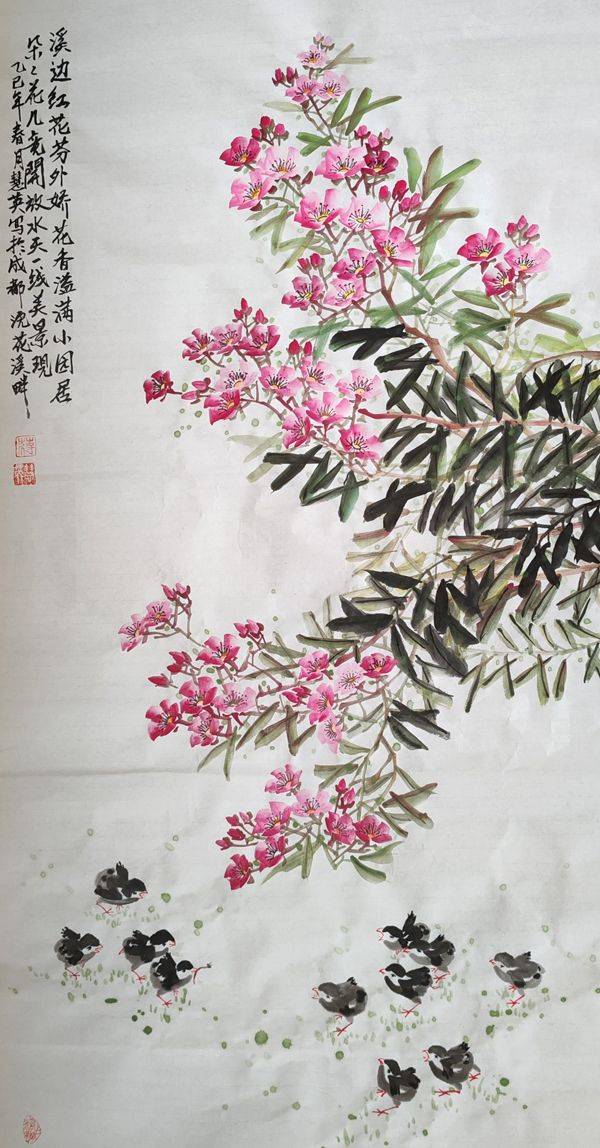 溪边红花芬外娇花香溢满小园居
朵々花儿竞開放水天一线美景现
乙巳年春月慧英写於成都浣花溪畔